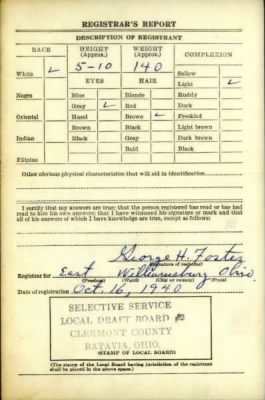 REGISTRAR'S REPORT
DESCRIPTION OF REGISTRANT
RACE HEIGHT (Approx.) WEIGHT (Approx.) COMPLEXION
White ✓ 5-10 140 Sallow
Light ✓
EYES HAIR
Negro Blue Blonde Ruddy
Gray ✓ Red Dark
Oriental Hazel Brown ✓ Freckled
Brown Black Light brown
Indian Black Gray Dark brown
Bald Black
Filipino
Other obvious physical characteristics that will aid in identification
I certify that my answers are true; that the person registered has read or has had
read to him his own answers; that I have witnessed his signature or mark and that
all of his answers of which I have knowledge are true, except as follows:
George H. Foster
(Signature of registrar)
Registrar for East Williamsburg Ohio
(Precinct) (Ward) (City or county) (State)
Date of registration Oct. 16, 1940
SELECTIVE SERVICE
LOCAL DRAFT BOARD #2
CLERMONT COUNTY
BATAVIA, OHIO.
(STAMP OF LOCAL BOARD)
(The stamp of the Local Board having jurisdiction of the registrant
shall be placed in the above space.)